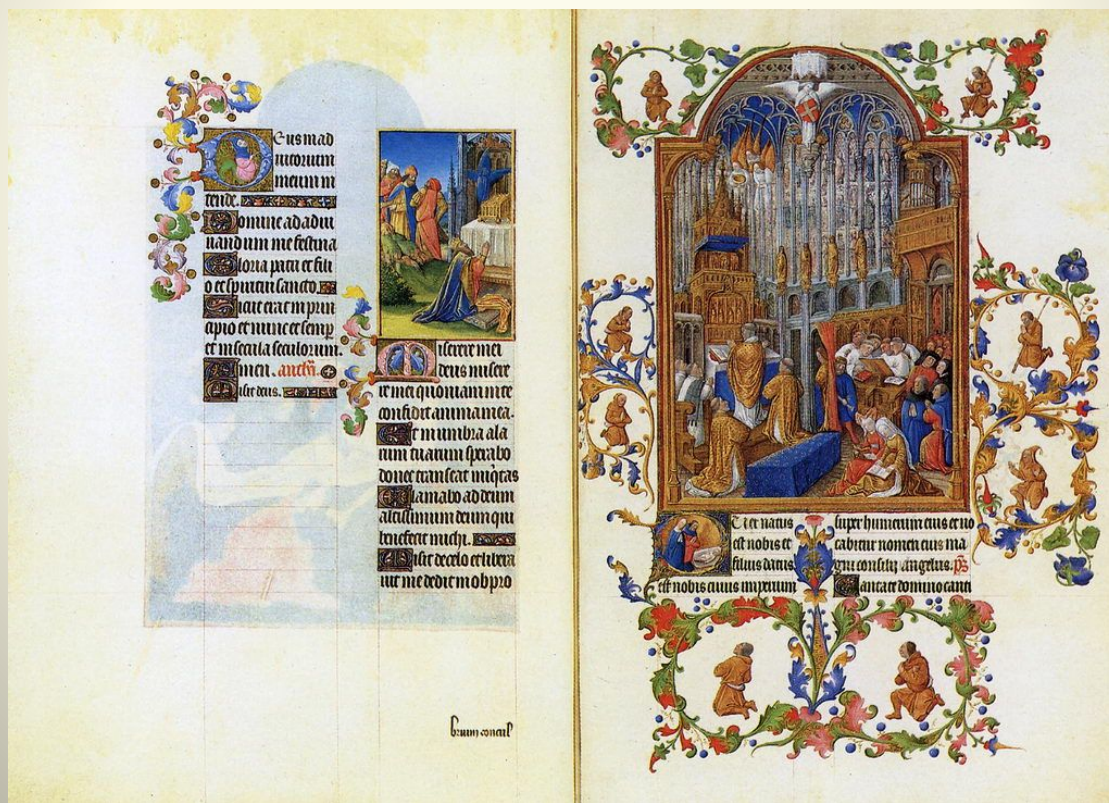 Deus in ad
iutorium
meum in
tende.
Domine ad adiu
uandum me festina
Gloria patri et fili
o et spiritui sancto
Sicut erat in prin
cipio et nunc et semp
et in secula seculorum.
Amen.
deus.
Miserere mei
deus misere
re mei quoniam in te
confidit anima mea.
Et in umbra ala
rum tuarum sperabo
donec transeat iniqtas
Clamabo ad deum
altissimum deum qui
benefecit michi.
Misit de celo et libera
uit me dedit in obpro
brium concul
Puer natus
est nobis et
filius datus
est nobis cuius imperium
super humerum eius et uo
cabitur nomen eius ma
gni consilij angelus. ps
Cantate domino canti